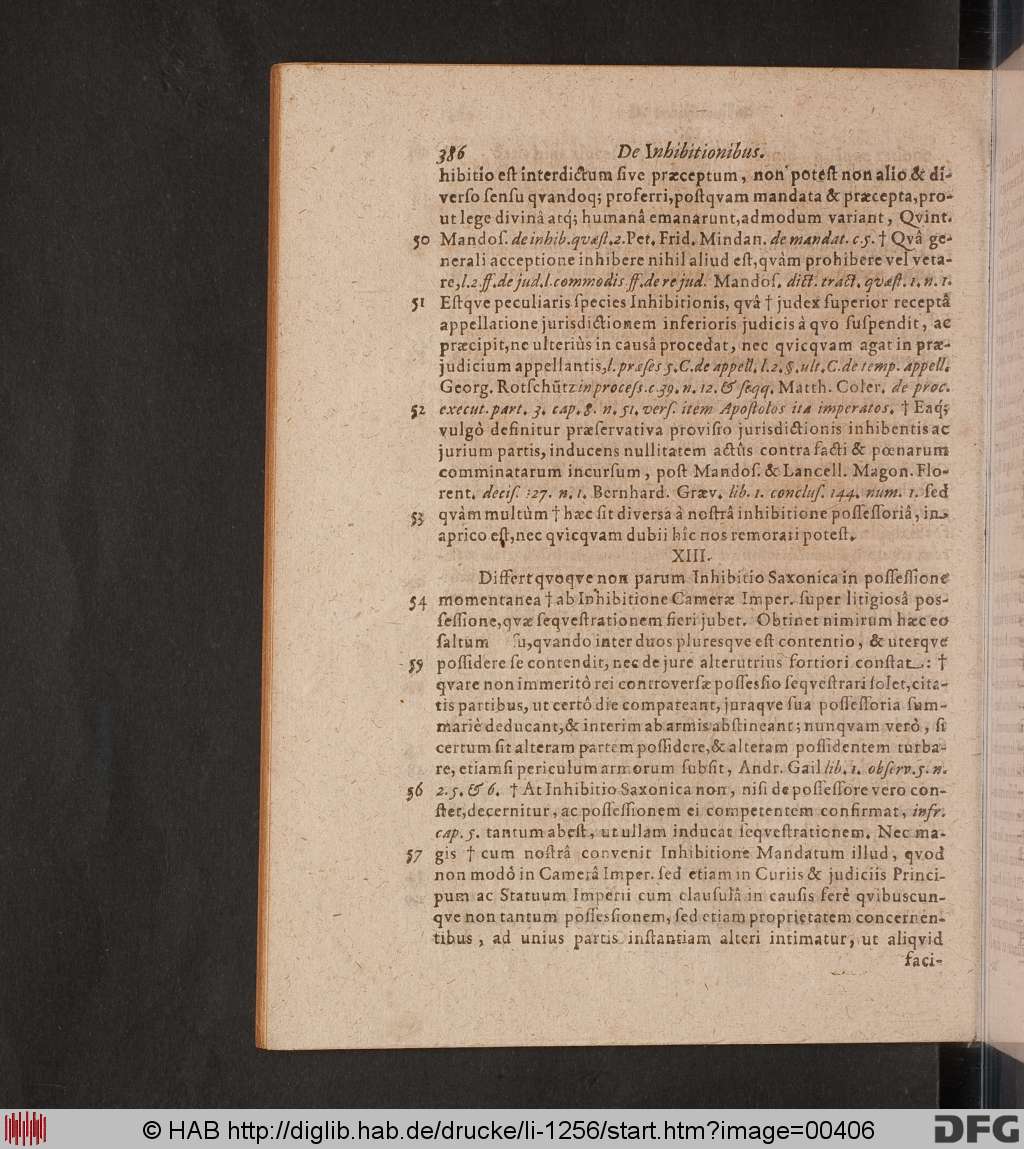 386 De Inhibitionibus.
hibitio eſt interdictum ſive præceptum, non poteſt non alio & di-
verſo ſenſu qvandoq; proferri, poſtqvam mandata & præcepta, pro-
ut lege divinâ atq; humanâ emanarunt, admodum variant, Qvint.
50 Mandoſ. de inhib. qvæſt. 2. Pet. Frid. Mindan. de mandat. c. 5. † Qvâ ge-
nerali acceptione inhibere nihil aliud eſt, qvàm prohibere vel veta-
re, l. 2. ff. de jud. l. commodis ff. de re jud. Mandoſ. dict. tract. qvæſt. 1. n. 1.
51 Eſtqve peculiaris ſpecies Inhibitionis, qvâ † judex ſuperior receptâ
appellatione jurisdictionem inferioris judicis à qvo ſuſpendit, ac
præcipit, ne ulteriùs in causâ procedat, nec qvicqvam agat in præ-
judicium appellantis, l. præſes 5. C. de appell. l. 2. §. ult. C. de temp. appell.
Georg. Rotſchütz in proceſs. c. 39. n. 12. & ſeqq. Matth. Coler. de proc.
52 execut. part. 3. cap. 8. n. 51. verſ. item Apoſtolos ita imperatos. † Eaq;
vulgò definitur præſervativa proviſio jurisdictionis inhibentis ac
jurium partis, inducens nullitatem actûs contra facti & pœnarum
comminatarum incurſum, poſt Mandoſ. & Lancell. Magon. Flo-
rent. deciſ. 127. n. 1. Bernhard. Græv. lib. 1. concluſ. 144. num. 1. ſed
53 qvàm multùm † hæc ſit diverſa à noſtrâ inhibitione poſſeſſoriâ, in
aprico eſt, nec qvicqvam dubii hîc nos remorari poteſt.
XIII.
Differt qvoqve non parum Inhibitio Saxonica in poſſeſſione
54 momentanea † ab Inhibitione Cameræ Imper. ſuper litigiosâ poſ-
ſeſſione, qvæ ſeqveſtrationem fieri jubet. Obtinet nimirum hæc eo
ſaltum ſu, qvando inter duos pluresqve eſt contentio, & uterqve
55 poſſidere ſe contendit, nec de jure alterutrius fortiori conſtat: †
qvare non immeritò rei controverſæ poſſeſſio ſeqveſtrari ſolet, cita-
tis partibus, ut certô die compareant, juraqve ſua poſſeſſoria ſum-
mariè deducant, & interim ab armis abſtineant; nunqvam verò, ſi
certum ſit alteram partem poſſidere, & alteram poſſidentem turba-
re, etiamſi periculum armorum ſubſit, Andr. Gail lib. 1. obſerv. 5. n.
56 2. 5. & 6. † At Inhibitio Saxonica non, niſi de poſſeſſore vero con-
ſtet, decernitur, ac poſſeſſionem ei competentem confirmat, infr.
cap. 5. tantum abeſt, ut ullam inducat ſeqveſtrationem. Nec ma-
57 gis † cum noſtrâ convenit Inhibitione Mandatum illud, qvod
non modò in Camerâ Imper. ſed etiam in Curiis & judiciis Princi-
pum ac Statuum Imperii cum clauſulâ in cauſis ferè qvibuscun-
qve non tantum poſſeſſionem, ſed etiam proprietatem concernen-
tibus, ad unius partis inſtantiam alteri intimatur, ut aliqvid
faci-
© HAB http://diglib.hab.de/drucke/li-1256/start.htm?image=00406
DFG